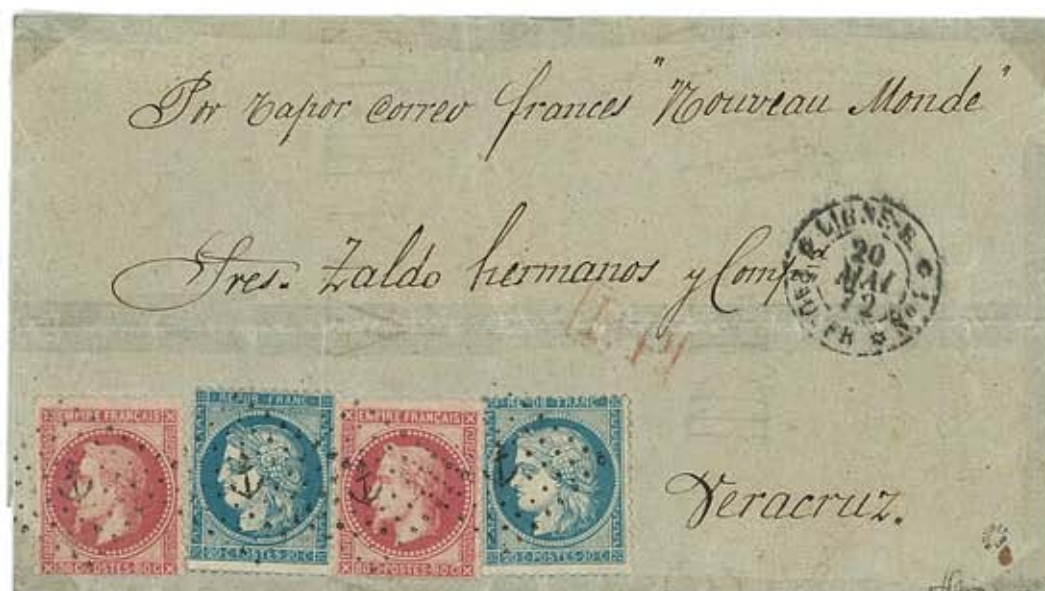 Por vapor correo frances "Nouveau Monde"
Sres. Zaldo hermanos y Comp
LIGNE B
20
MAI
72
PAQ. FR
Nº1
EMPIRE FRANÇAIS
80 C POSTES 80 C
REPUB FRANC
20 C POSTES 20 C
EMPIRE FRANÇAIS
80 C POSTES 80 C
REPUB FRANC
20 C POSTES 20 C
Veracruz.